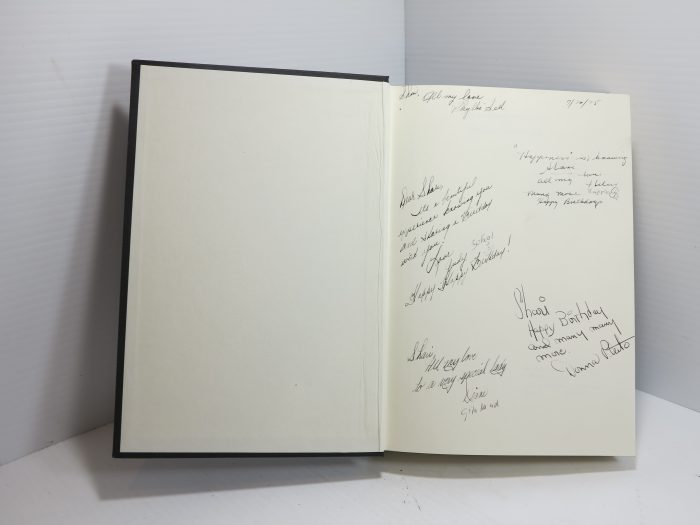 Shari, All my love
7/10/75
"Happiness" is knowing
Shari
All my love
Helen
many more
Happy Birthdays
Dear Shari,
It's a beautiful
experience knowing you
and sharing a Birthday
with you.
Love
Judy
Happy Happy Birthday!
Shari
Happy Birthday
and many many
more.
Donna
Shari,
All my love
to a very special lady